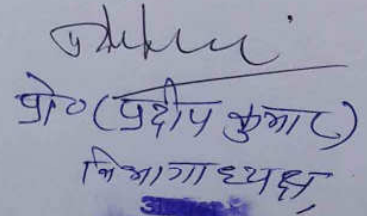 प्रो० (प्रदीप कुमार)
विभागाध्यक्ष,